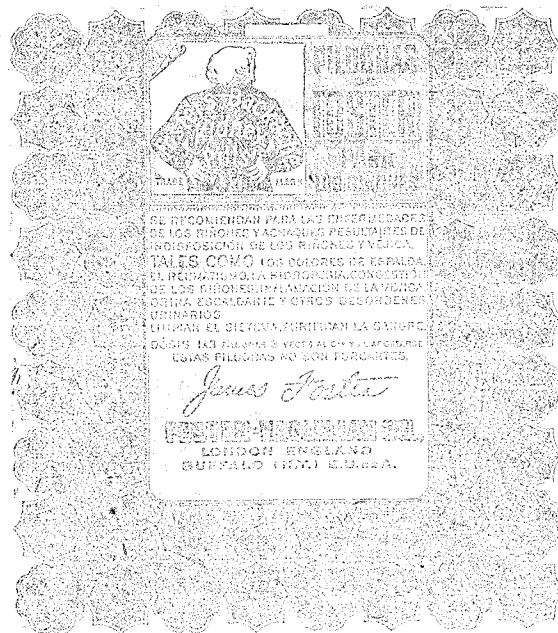 Backache
Kidney
Pills
TRADE MARK
PILDORAS
DE
FOSTER
PARA
LOS RIÑONES
SE RECOMIENDAN PARA LAS ENFERMEDADES
DE LOS RIÑONES Y ACHAQUES RESULTANTES DE
INDISPOSICIÓN DE LOS RIÑONES Y VEJIGA,
TALES COMO LOS DOLORES DE ESPALDA,
EL REUMATISMO, LA HIDROPESIA, CONGESTIÓN
DE LOS RIÑONES, INFLAMACIÓN DE LA VEJIGA
ORINA ESCALDANTE Y OTROS DESORDENES
URINARIOS
LIMPIAN EL SISTEMA, PURIFICAN LA SANGRE.
DOSIS 1 A 3 PILDORAS 3 VECES AL DIA Y AL ACOSTARSE
ESTAS PILDORAS NO SON PURGANTES.
James Foster
FOSTER-McCLELLAN CO.,
LONDON ENGLAND
BUFFALO (N.Y.) E.U. DE A.